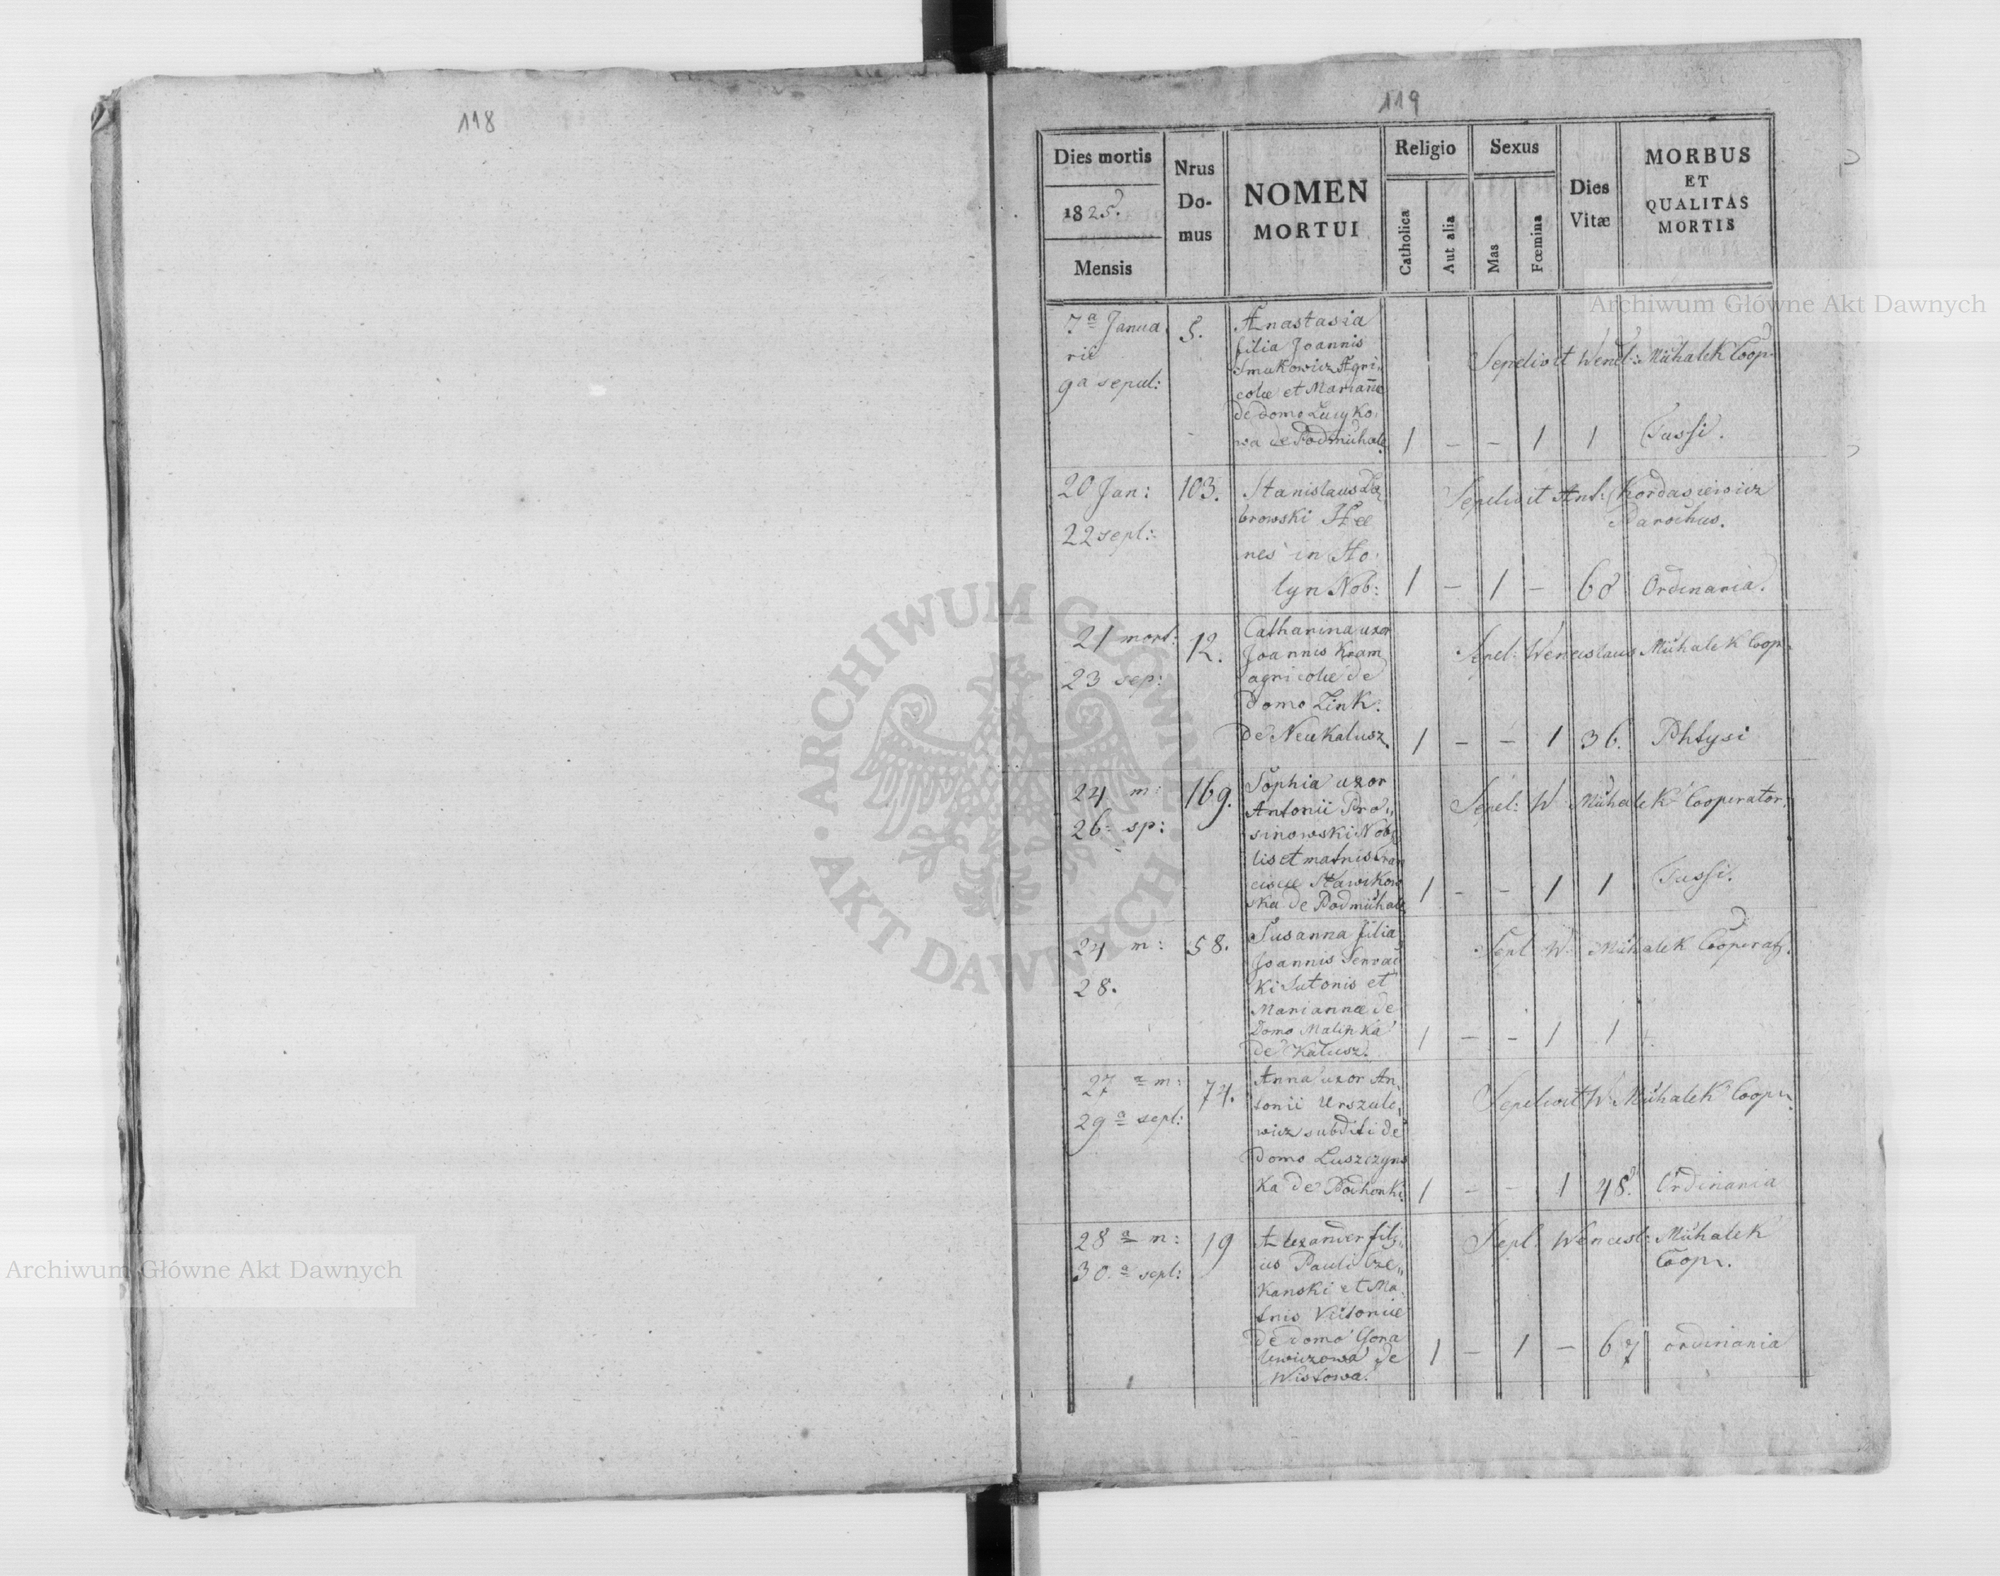 118
119
Dies mortis
1825.
Mensis
Nrus
Do-
mus
NOMEN
MORTUI
Religio
Catholica
Aut alia
Sexus
Mas
Fœmina
Dies
Vitæ
MORBUS
ET
QUALITAS
MORTIS
7a Janua
rii
9a sepul:
5.
Anastasia
filia Joannis
Smukowicz Agri„
colæ et Mariañæ
de domo
wa de Podmichale
Sepelivit Wencl: Michalek Coop
1 – – 1 1 Tussi.
20 Jan:
22 sepl:
103.
Stanislaus Dą
browski
in Ho
lyn Nob:
Sepelivit Ant: Kordasiewicz
Parochus.
1 – 1 – 68 Ordinaria.
21 mort:
23 sep:
12.
Catharina uxor
Joannis Kram
agricolæ de
domo Link.
de Neukalusz.
Sepel: Wenceslaus Michalek Coop.
1 – – 1 36. Phtysi
24 m:
26 sp:
169.
Sophia uxor
Antonii Pro„
sinowski Nobi
lis et matris Fran
ciscæ Sławikow
ska de Podmichale
Sepel: W Michalek Cooperator.
1 – – 1 1 Tussi.
24 m:
28.
58.
Susanna filia
Joannis
ki Sutoris et
Mariannæ de
Domo Malinka
de Kalusz.
Sepl W. Michalek Cooperat.
1 – – 1 1
27 a m:
29 a sepl:
74.
Anna uxor An„
tonii Urszule„
wicz subditi de
domo Luszczyns
ka de Pochonki.
Sepelivit W. Michalek Coopr.
1 – – 1 48. Ordinaria
28 a m:
30. a sepl:
19
Alexander fili„
us Pauli Cze„
kanski et Ma„
tris Victoriæ
de domo Gora
lewiczowa de
Wistowa.
Sepl. Wencesl: Michalek
Coopr.
1 – 1 – 67 ordinaria
Archiwum Główne Akt Dawnych
Archiwum Główne Akt Dawnych
ARCHIWUM GŁÓWNE AKT DAWNYCH